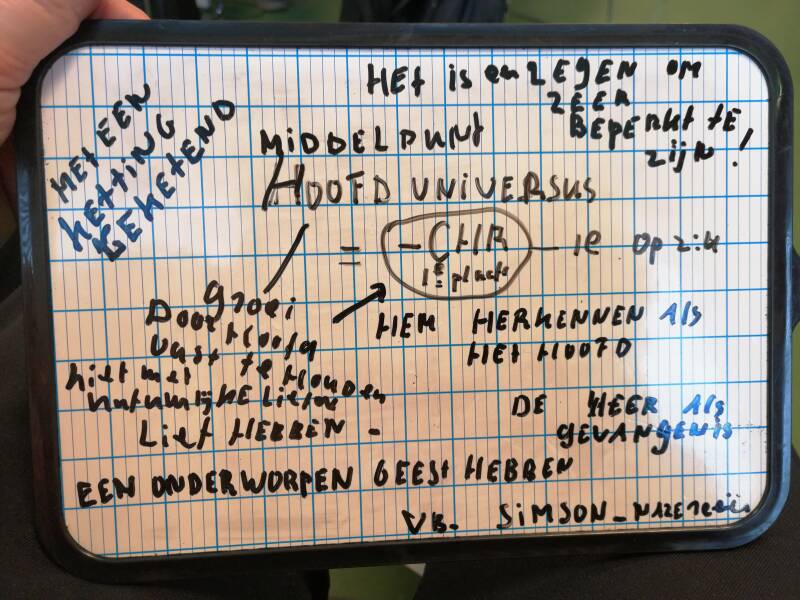 HET IS en ZEGEN OM
ZEER
BEPERKT TE
ZIJN!
MET EEN
KETTING
GEKETEND
MIDDELPUNT
HOOFD UNIVERSUS
= - CHR - 1e op zich
1E plaats
groei
Door Hoofd
vast te Houden
niet met
natuurlijke Liefde
LIEF HEBBEN -
HEM HERKENNEN Als
HET HOOFD
DE HEER Als
GEVANGENIS
EEN ONDERWORPEN GEEST HEBBEN
VB. SIMSON_